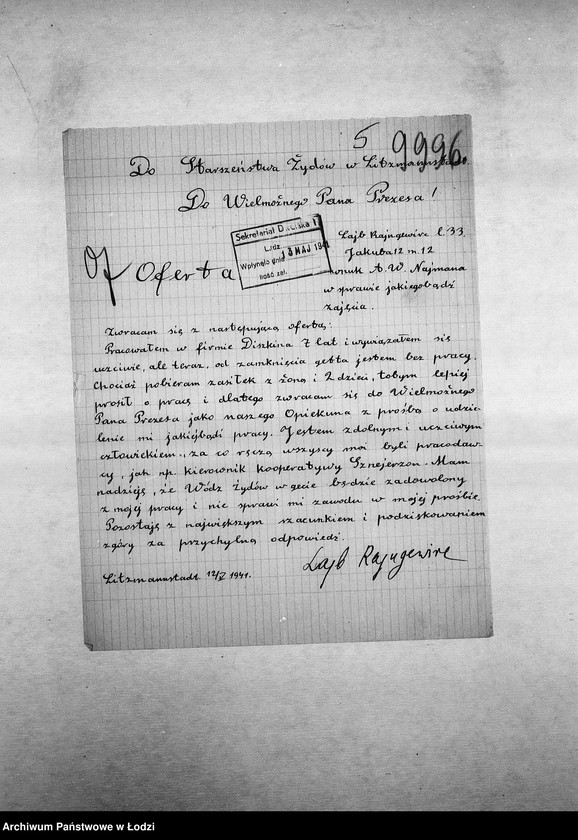 5 9996
Do Starszeństwa Żydów w Litzmannstadt.
Do Wielmożnego Pana Prezesa!
Sekretariat Dworska 1
Łódź
Wpłynęło dnia 13 MAJ 1941
Ilość zał.
Lajb Rajngewirc l. 33
Jakuba 12 m. 12
wnuk A. W. Najmana
w sprawie jakiegobądź
zajęcia.
Oferta
Zwracam się z następującą ofertą:
Pracowałem w firmie Diszkina 7 lat i wywiązałem się
uczciwie, ale teraz, od zamknięcia getta jestem bez pracy.
Chociaż pobieram zasiłek z żoną i 2 dzieci, tobym lepiej
prosił o pracę i dlatego zwracam się do Wielmożnego
Pana Prezesa jako naszego Opiekuna z prośbą o udzie-
lenie mi jakiejbądź pracy. Jestem zdolnym i uczciwym
człowiekiem, za co ręczą wszyscy moi byli pracodaw-
cy, jak np. kierownik kooperatywy Sznejerzon. Mam
nadzieję, że Wódz Żydów w gecie będzie zadowolony
z mojej pracy i nie sprawi mi zawodu w mojej prośbie.
Pozostaję z największym szacunkiem i podziękowaniem
zgóry za przychylną odpowiedź.
Litzmannstadt 12/V 1941.
Lajb Rajngewirc
Archiwum Państwowe w Łodzi